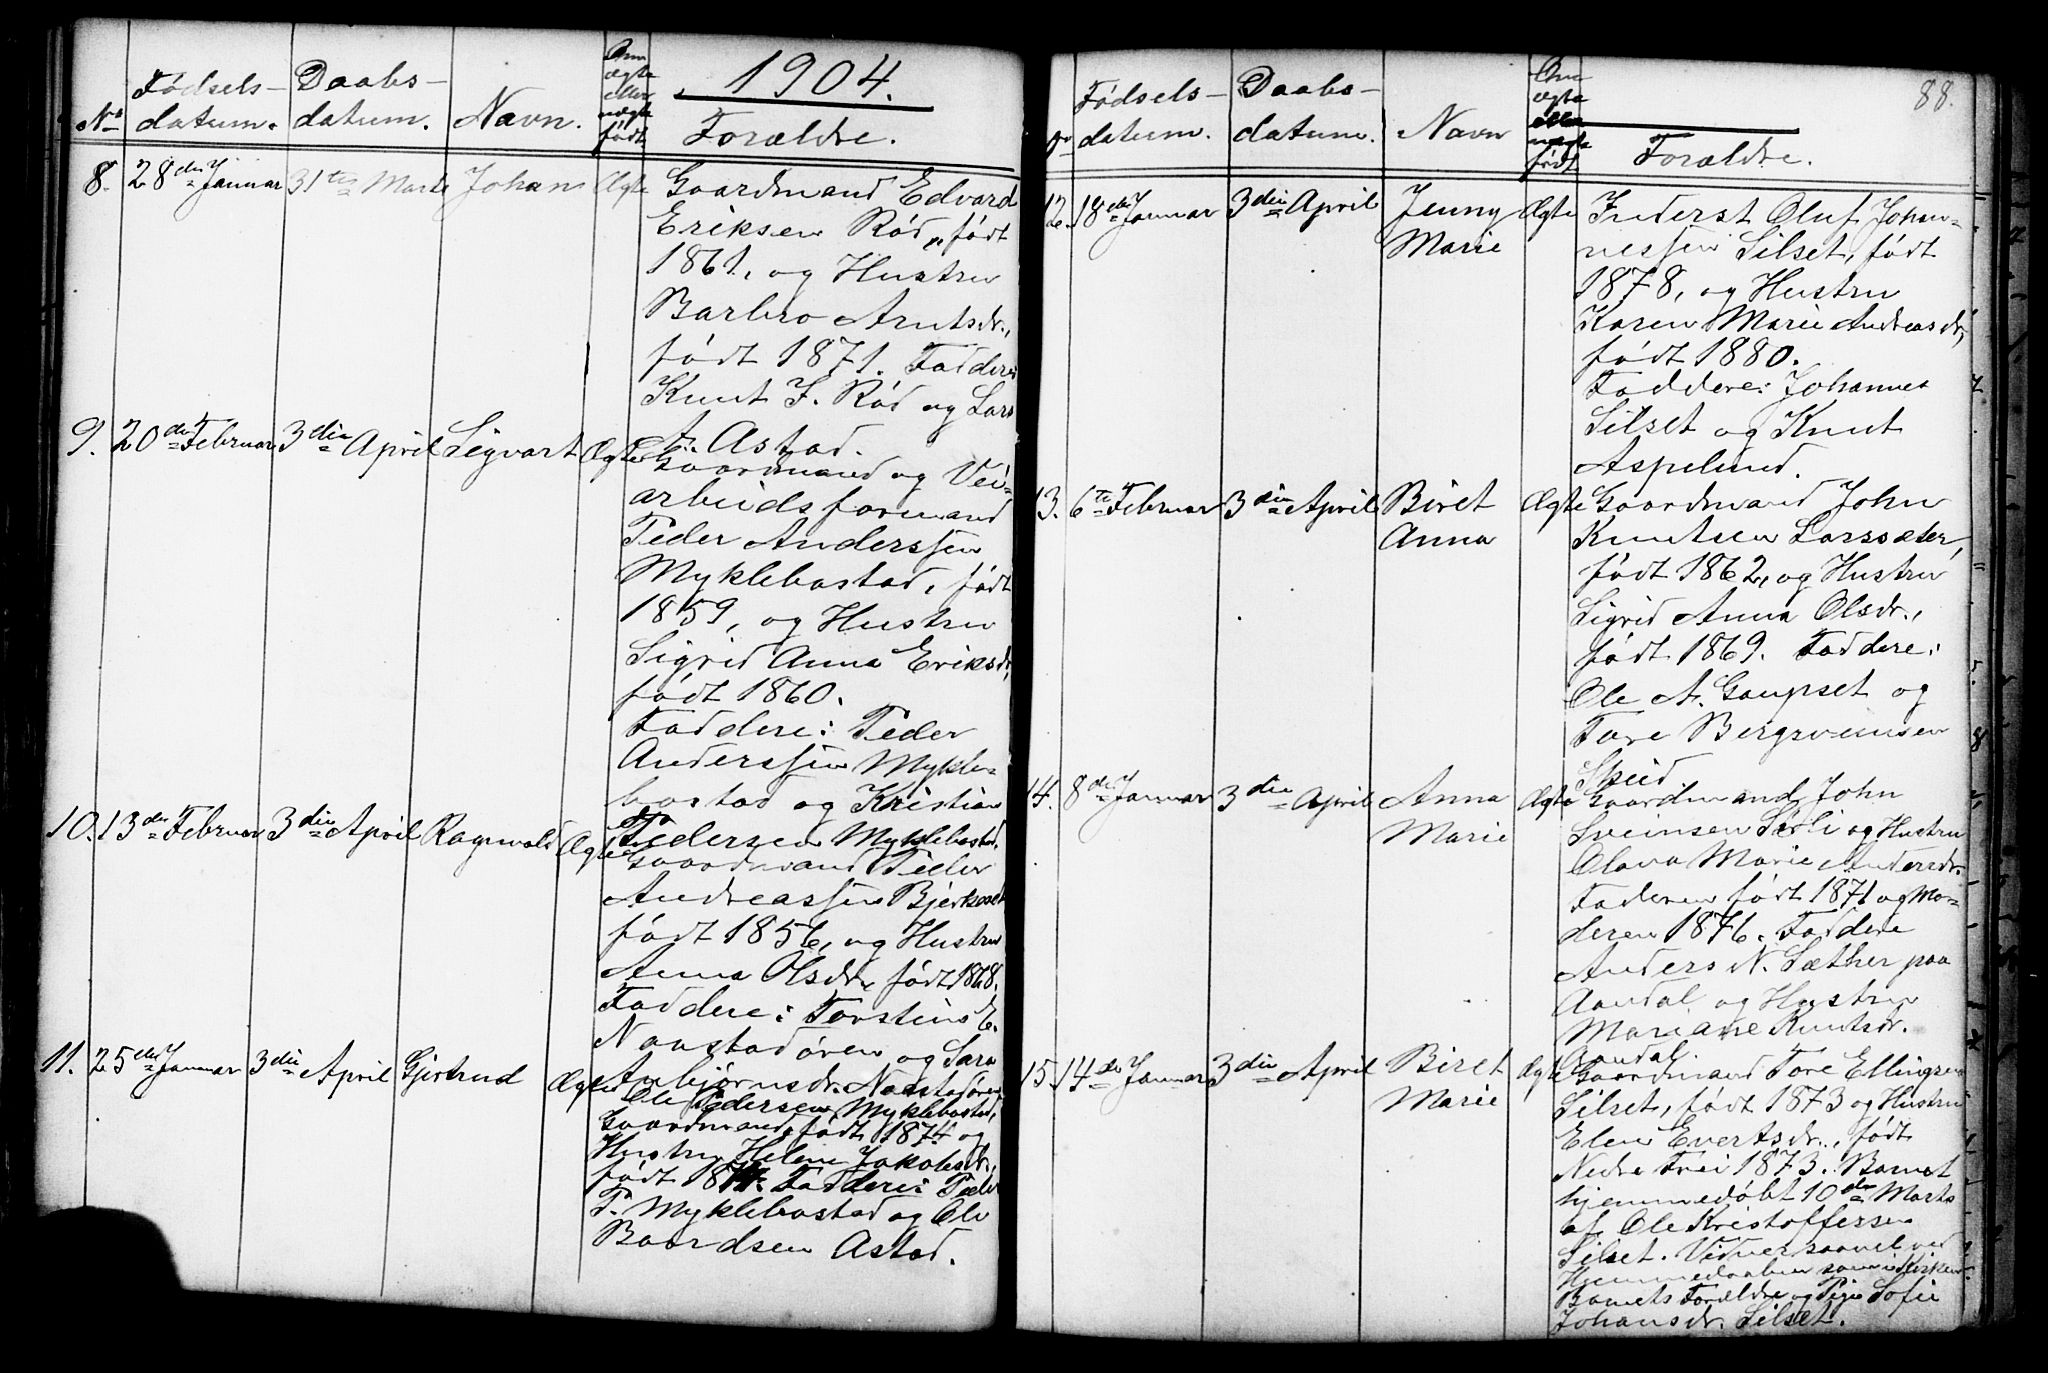 1904.
No Fødsels-datum. Daabs-datum. Navn. Om ægte eller uægte født Forældre.
8. 28de Januar 31te Marts Johan Ægte Gaardmand Edvard
Eriksen Rød, født
1861, og Hustru
Barbro Arntsdr.,
født 1871. Faddere:
Knut F. Rød og Lars
Astad.
9. 20de Februar 3die April Sigvart Ægte Gaardmand og Vei-
arbeidsformand
Peder Anderssen
Myklebostad, født
1859, og Hustru
Sigrid Anna Eriksdr,
født 1860.
Faddere: Peder
Anderssen Mykle-
bostad og Kristian
Pedersen Myklebostad.
10. 13de Februar 3die April Ragnvald Ægte Gaardmand Peder
Andreassen Bjerkeset
født 1856, og Hustru
Anna Olsdr. født 1868.
Faddere: Torstein E.
Naustadøren og Sara
Anbjørnsdr. Naustadøren
11. 25de Januar 3die April Gjertrud Ægte Ole Pedersen Myklebostad,
Gaardmand, født 1874 og
Hustru Helene Jakobsdr.,
født Faddere: Peder
P. Myklebostad og Ole
Baardsen Astad.
88.
Fødsels-datum. Daabs-datum. Navn Om ægte eller uægte født Forældre.
12. 18de Januar 3die April Jenny Marie Ægte Inderst Oluf Johan-
nessen Silset, født
1878, og Hustru
Karen Marie Andreasdr,
født 1880.
Faddere: Johannes
Silset og Knut
Aspelund.
13. 6te Februar 3die April Biret Anna Ægte Gaardmand John
Knutsen Larssæter,
født 1862, og Hustru
Sigrid Anna Olsdr.,
født 1869. Faddere:
Ole A. Gaupset og
Tore Bergsveinsen
Skeid.
14. 8de Januar 3die April Anna Marie Ægte Gaardmand John
Sveinsen Sørli og Hustru
Olava Marie Andersdr.
Faderen født 1871 og Mo-
deren 1876. Faddere
Anders N. Sæther paa
Aandal og Hustru
Mariane Knutsdr.
Aandal.
15. 14de Januar 3die April Biret Marie Ægte Gaardmand Tore Ellingsen
Silset, født 1873 og Hustru
Elen Evertsdr., født
Nedre Frei 1873. Barnet
hjemmedøbt 10de Marts
af Ole Kristoffersen
Silset. Vidner saavel ved
Hjemmedaaben som i Kirken
Barnets Forældre og Pige Sofie
Johansdr. Silset.